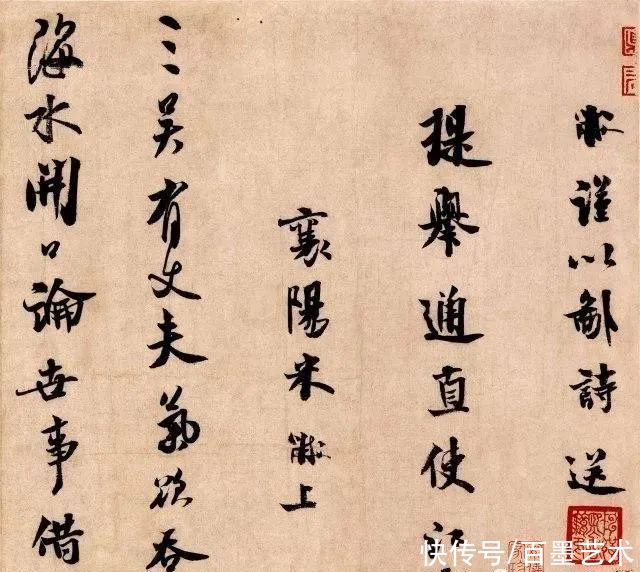 黻謹以鄙詩送
提舉通直使
襄陽米黻上
三吳有丈夫氣欲吞
海水開口論世事借
快传号/百墨艺术